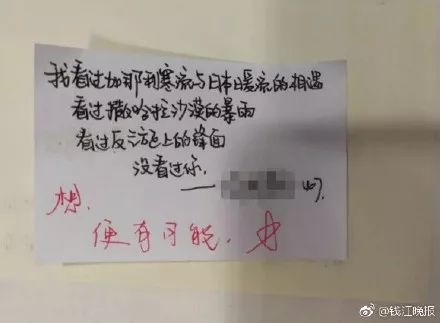 我看过加那利寒流与日本暖流的相遇
看过撒哈拉沙漠的暴雨
看过反气旋上的锋面
没看过你.
——
想.
便有可能.
@钱江晚报